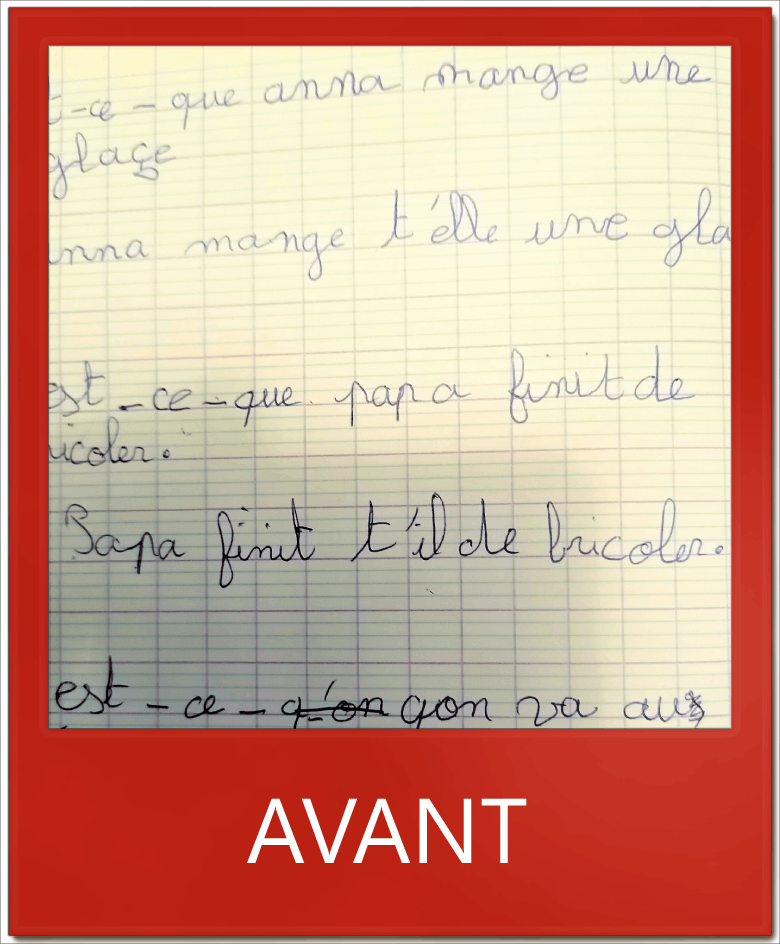 t-ce-que anna mange une
glace
nna mange t'elle une gla
est-ce-que papa finit de
icoler.
Papa finit t'il de bricoler.
est-ce-q'on qon va aux
AVANT